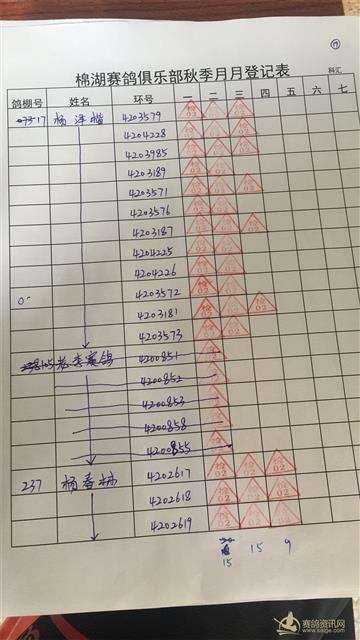 ⑰
棉湖赛鸽俱乐部秋季月月登记表
科汇
鸽棚号 姓名 环号 一 二 三 四 五 六 七
17 杨泽楷 4203579
4204228
4203985
4203189
4203571
4203576
4203187
4204225
4204226
4203572
4203181
4203573
老李赛鸽 4200851
4200852
4200853
4200858
4200855
237 杨春林 4202617
4202618
4202619
15 15 9
赛鸽资讯网
www.saige.com